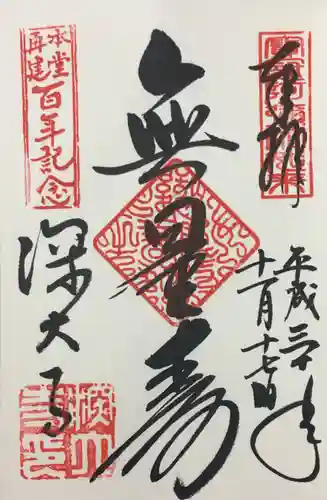 奉拝
平成三十年
十一月十七日
無量寿
本堂
再建
百年記念
深大寺